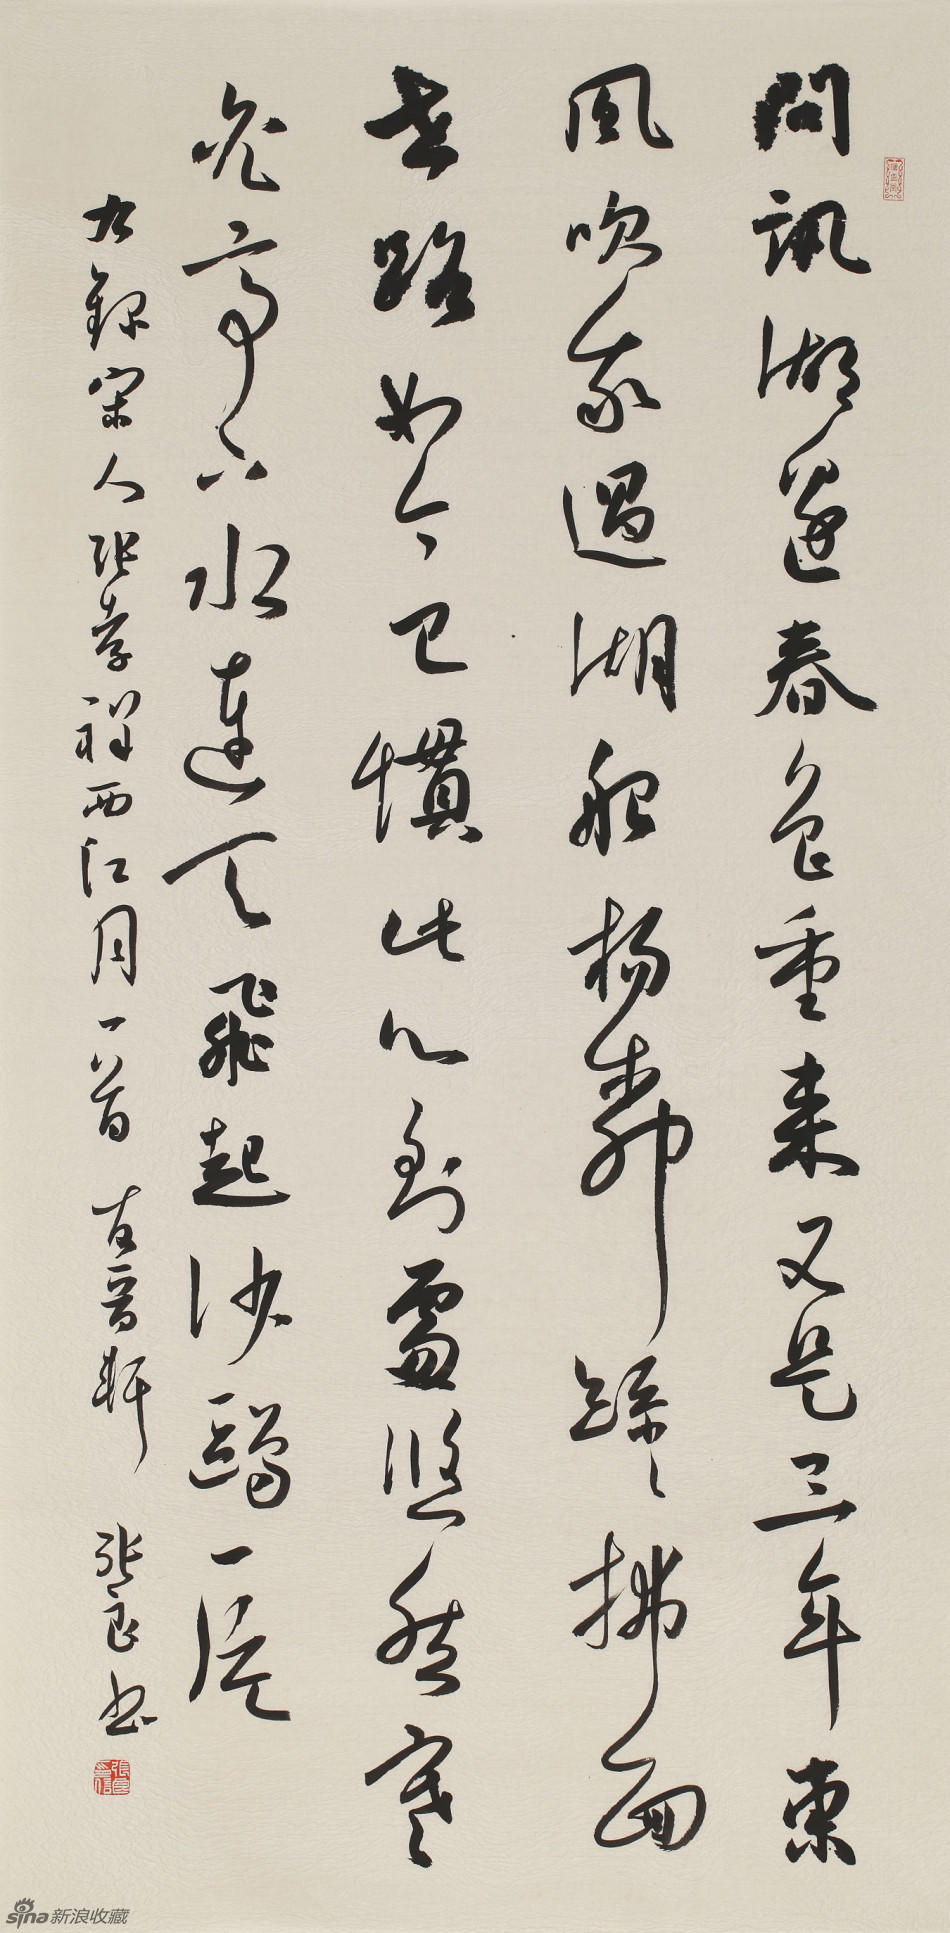 問訊湖邊春色重来又是三年東
風吹我過湖船楊柳絲〻拂面
世路如今已慣此心到處悠然寒
光亭下水連天飛起沙鷗一片
右錄宋人張孝祥西江月一首 張良書
sina新浪收藏